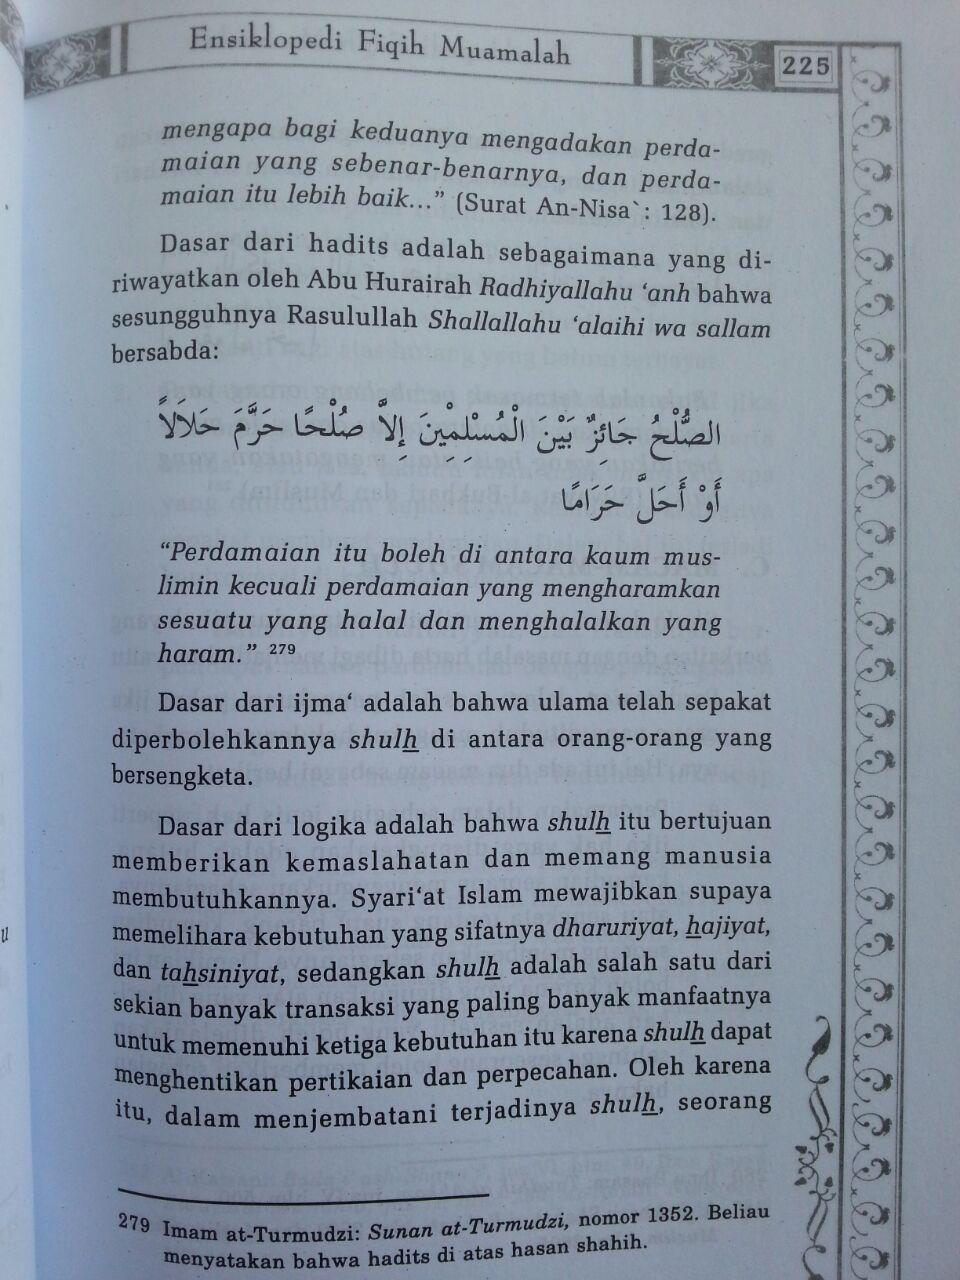 Ensiklopedi Fiqih Muamalah
225
mengapa bagi keduanya mengadakan perda-
maian yang sebenar-benarnya, dan perda-
maian itu lebih baik...” (Surat An-Nisa`: 128).
Dasar dari hadits adalah sebagaimana yang di-
riwayatkan oleh Abu Hurairah Radhiyallahu ‘anh bahwa
sesungguhnya Rasulullah Shallallahu ‘alaihi wa sallam
bersabda:
الصُّلْحُ جَائِزٌ بَيْنَ الْمُسْلِمِيْنَ إِلاَّ صُلْحًا حَرَّمَ حَلَالاً
أَوْ أَحَلَّ حَرَامًا
“Perdamaian itu boleh di antara kaum mus-
limin kecuali perdamaian yang mengharamkan
sesuatu yang halal dan menghalalkan yang
haram.” 279
Dasar dari ijma‘ adalah bahwa ulama telah sepakat
diperbolehkannya shulh di antara orang-orang yang
bersengketa.
Dasar dari logika adalah bahwa shulh itu bertujuan
memberikan kemaslahatan dan memang manusia
membutuhkannya. Syari‘at Islam mewajibkan supaya
memelihara kebutuhan yang sifatnya dharuriyat, hajiyat,
dan tahsiniyat, sedangkan shulh adalah salah satu dari
sekian banyak transaksi yang paling banyak manfaatnya
untuk memenuhi ketiga kebutuhan itu karena shulh dapat
menghentikan pertikaian dan perpecahan. Oleh karena
itu, dalam menjembatani terjadinya shulh, seorang
279 Imam at-Turmudzi: Sunan at-Turmudzi, nomor 1352. Beliau
menyatakan bahwa hadits di atas hasan shahih.